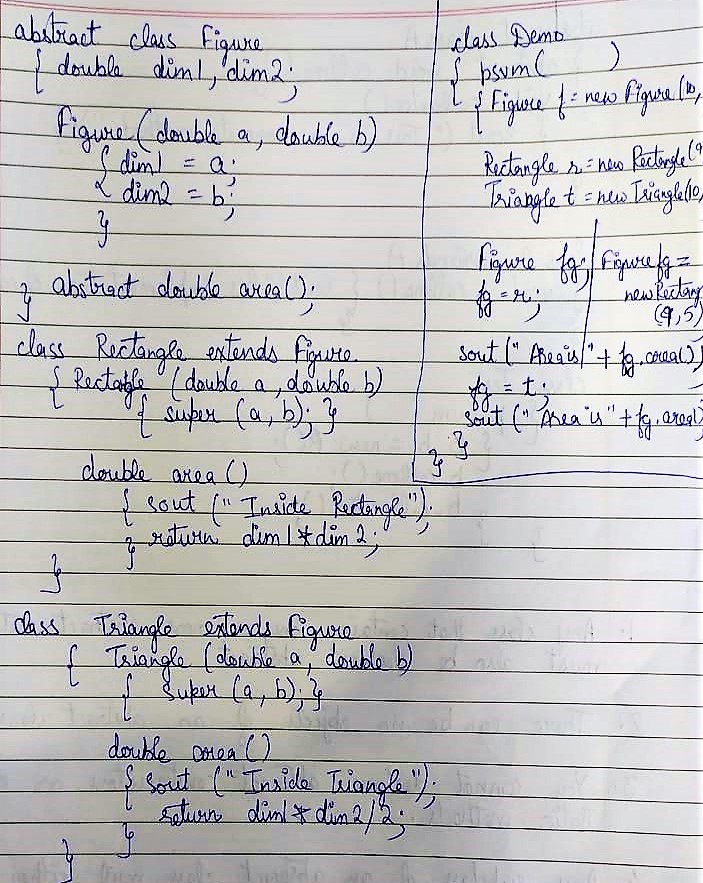 abstract class Figure
{ double dim1, dim2;
Figure (double a, double b)
{ dim1 = a;
dim2 = b;
}
abstract double area();
}
class Rectangle extends Figure
{ Rectangle (double a, double b)
{ super (a, b); }
double area ()
{ sout ("Inside Rectangle");
return dim1 * dim2;
}
}
class Triangle extends Figure
{ Triangle (double a, double b)
{ super (a, b); }
double area ()
{ sout ("Inside Triangle");
return dim1 * dim2/2;
}
}
class Demo
{ psvm( )
{ Figure f = new Figure (10,
Rectangle r = new Rectangle (9
Triangle t = new Triangle (10,
Figure fg;
fg = r;
Figure fg =
new Rectang
(9, 5)
sout ("Area is" + fg.area())
fg = t;
sout ("Area is" + fg.area()
}
}